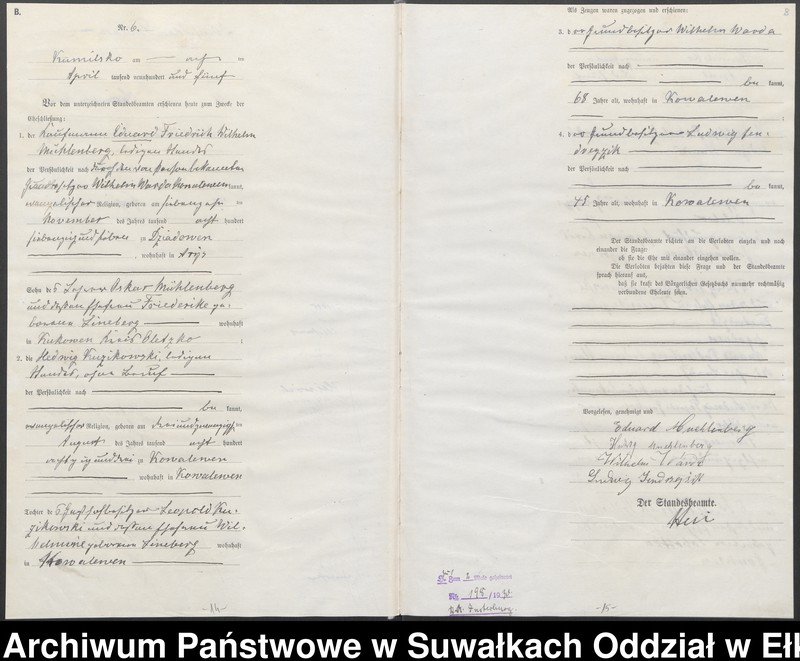 B.
Nr. 6.
am — acht — ten
April tausend neunhundert und fünf
Vor dem unterzeichneten Standesbeamten erschienen heute zum Zwecke der
Eheschließung:
1. der Kaufmann Eduard Friedrich Wilhelm
Mühlenberg, ledigen Standes
der Persönlichkeit nach durch den von Person bekannten
Grundbesitzer Wilhelm Warda Kowalewen kannt,
evangelischer Religion, geboren am siebenzehn ten
November des Jahres tausend acht hundert
siebenzig und sieben zu Dziadowen
, wohnhaft in Arys
Sohn des Oskar Mühlenberg
und dessen Ehefrau Friederike ge-
borenen Lineberg wohnhaft
in Kukowen Kreis Oletzko ;
2. die Hedwig Kuzikowski, ledigen
Standes, ohne Beruf
der Persönlichkeit nach
be kannt,
evangelischer Religion, geboren am dreiundzwanzigsten
August des Jahres tausend acht hundert
achtzig und drei zu Kowalewen
, wohnhaft in Kowalewen
Tochter des Leopold Ku-
zikowski und dessen Ehefrau Wil-
helmine geborenen Lineberg wohnhaft
in Kowalewen
-14-
Als Zeugen waren zugezogen und erschienen:
3. der Grundbesitzer Wilhelm Warda
der Persönlichkeit nach
be kannt,
68 Jahre alt, wohnhaft in Kowalewen
;
4. der Grundbesitzer Ludwig Jen-
dreyzik
der Persönlichkeit nach
be kannt,
45 Jahre alt, wohnhaft in Kowalewen
Der Standesbeamte richtete an die Verlobten einzeln und nach
einander die Frage:
ob sie die Ehe mit einander eingehen wollen.
Die Verlobten bejahten diese Frage und der Standesbeamte
sprach hierauf aus,
daß sie kraft des Bürgerlichen Gesetzbuchs nunmehr rechtmäßig
verbundene Eheleute seien.
Vorgelesen, genehmigt und
Eduard Muehlenberg
Muehlenberg
Wilhelm Warda
Ludwig Jendreyzik
Der Standesbeamte.
Zum
195/19
Insterburg.
-15-
Archiwum Państwowe w Suwałkach Oddział w Ełk